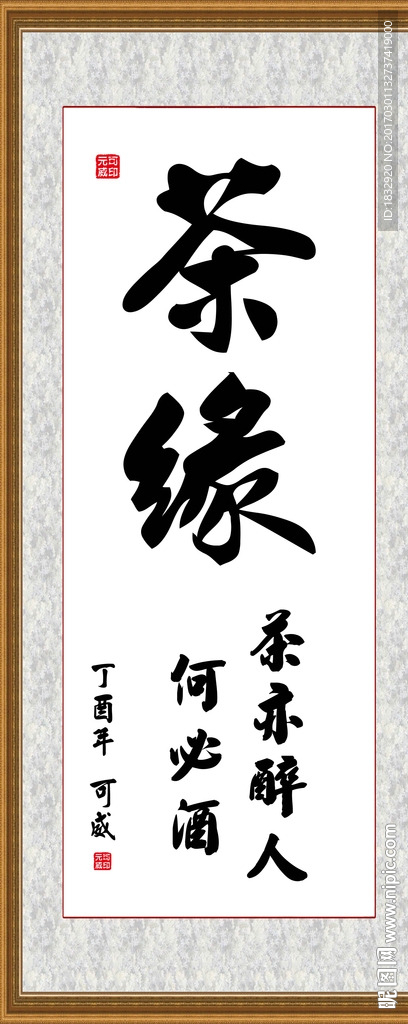 茶缘
茶亦醉人
何必酒
丁酉年 可威
ID:1832920 NO:20170301132737419000
昵图网 www.nipic.com